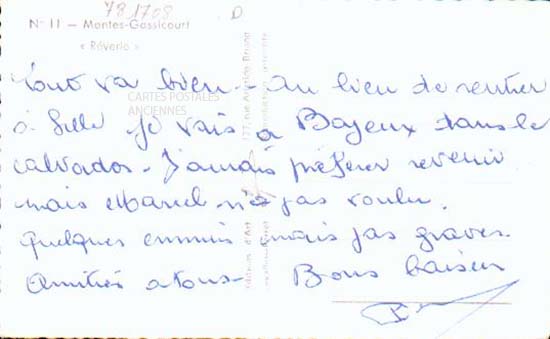 781708
N° 11 — Mantes-Gassicourt
« Rêverie »
Tout va bien. Au lieu de rentrer
à Lille je vais à Bayeux dans le
calvados. J'aurais préférer revenir
mais Marcel n'a pas voulu.
Quelques ennuis mais pas graves.
Amitiés a tous. Bons baisers
CARTES POSTALES
ANCIENNES
177, rue Aristide Briand
Editions d'Art
Reproduction interdite
D